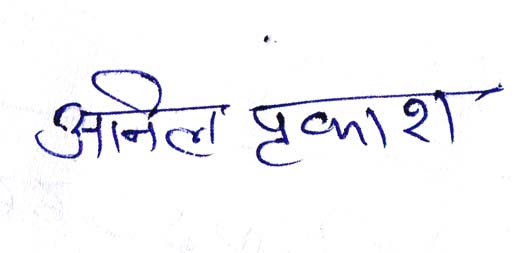 अनिल प्रकाश